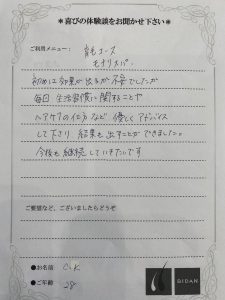 ＊喜びの体験談をお聞かせ下さい＊
ご利用メニュー： 育毛コース
モナリスパ
初めは効果が出るか不安でしたが
毎日 生活習慣に関することや
ヘアケアの仕方など 優しくアドバイス
して下さり 結果も出すことができました。
今後も継続していきたいです
ご要望など、ございましたらどうぞ
●お名前 C.K
●ご年齢 28
BIDAN